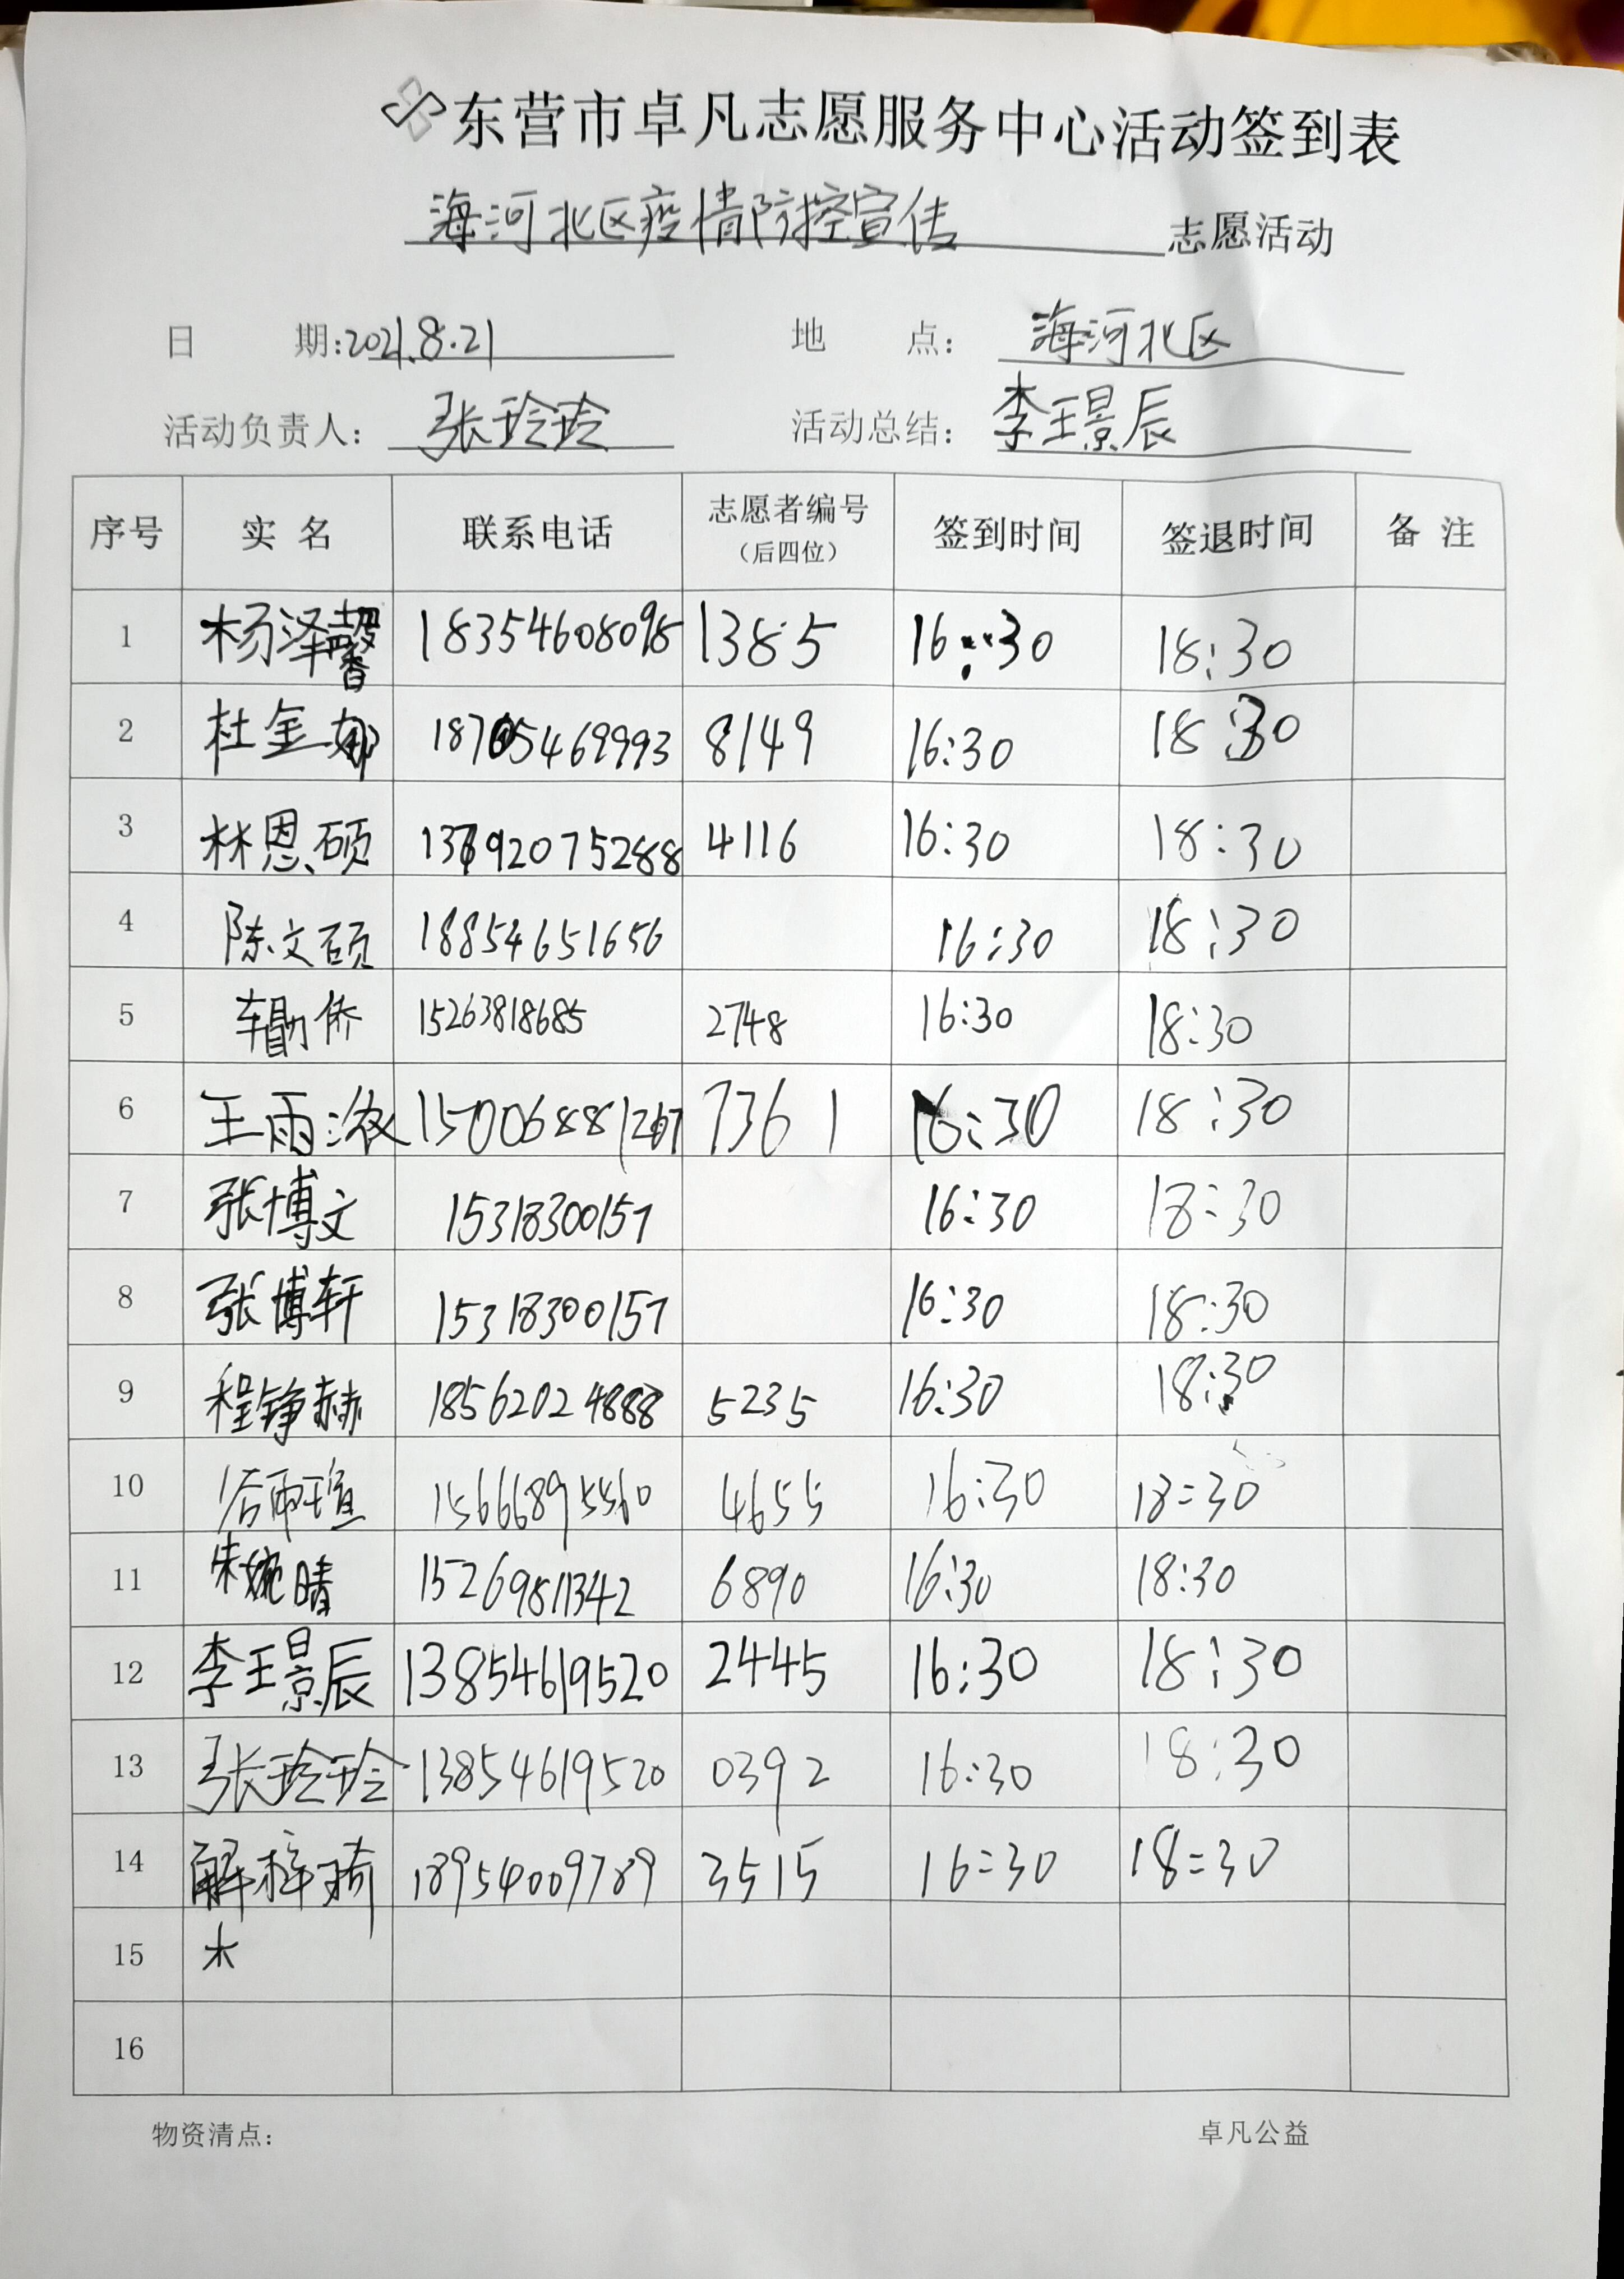 东营市卓凡志愿服务中心活动签到表
海河北区疫情防控宣传 志愿活动
日 期:2021.8.21 地 点: 海河北区
活动负责人: 张玲玲 活动总结: 李王景辰
序号 实 名 联系电话 志愿者编号 (后四位) 签到时间 签退时间 备 注
1 杨泽馨 18354608098 1385 16:30 18:30
2 杜金娜 18705469993 8149 16:30 18:30
3 林恩硕 4116 16:30 18:30
4 陈文硕 18854651656 16:30 18:30
5 车勖侨 15263818685 2748 16:30 18:30
6 王雨浓 7361 16:30 18:30
7 张博文 15318300157 16:30 18:30
8 张博轩 15318300157 16:30 18:30
9 程铮赫 18562024888 5235 16:30 18:30
10 15666895560 4655 16:30 18:30
11 朱婉晴 15269811342 6890 16:30 18:30
12 李王景辰 13854619520 2445 16:30 18:30
13 张玲玲 13854619520 0392 16:30 18:30
14 解梓琦 18954009789 3515 16:30 18:30
15 木
16
物资清点: 卓凡公益